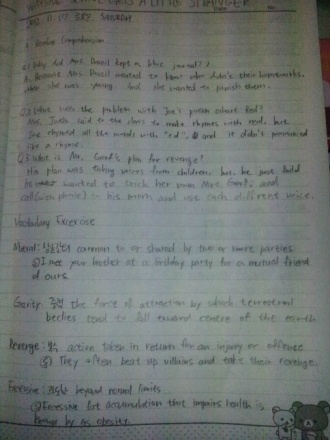 WAYSIDE SCHOOL GETS A LITTLE STRANGER
Date No
2012. 11. 17 SATURDAY
Reading Comprehension
Q.1 Why did Mrs. Drazil kept a blue journal?
A. Because Mrs Drazil wanted to know who didn't their homeworks,
when she was young. And she wanted to punish them.
Q.2 What was the problem with Joe's poem about Red?
Mrs. Jewls said to the class to make rhymes with red, but
Joe rhymed all the words with "ed", and it didn't pronounced
like a rhyme.
Q.3 What is Mr. Gorf's plan for revenge?
His plan was taking voices from children, but he
wanted to trick her mom Mrs. Gorf's and
call(with phone) his mom and use each different voice.
Vocabulary Excercise
Mutual: common to or shared by two or more parties
I met your brother at a birthday party for a mutual friend
of ours.
Gravity: 중력 The force of attraction by which terrestrial
bodies tend to fall toward centre of the earth
Revenge: 복수 action taken in return for an injury or offence
They often beat up villains and take their revenge.
Excessive: beyond normal limits
Excessive fat accumulation that impairs health is
known by as obesity.